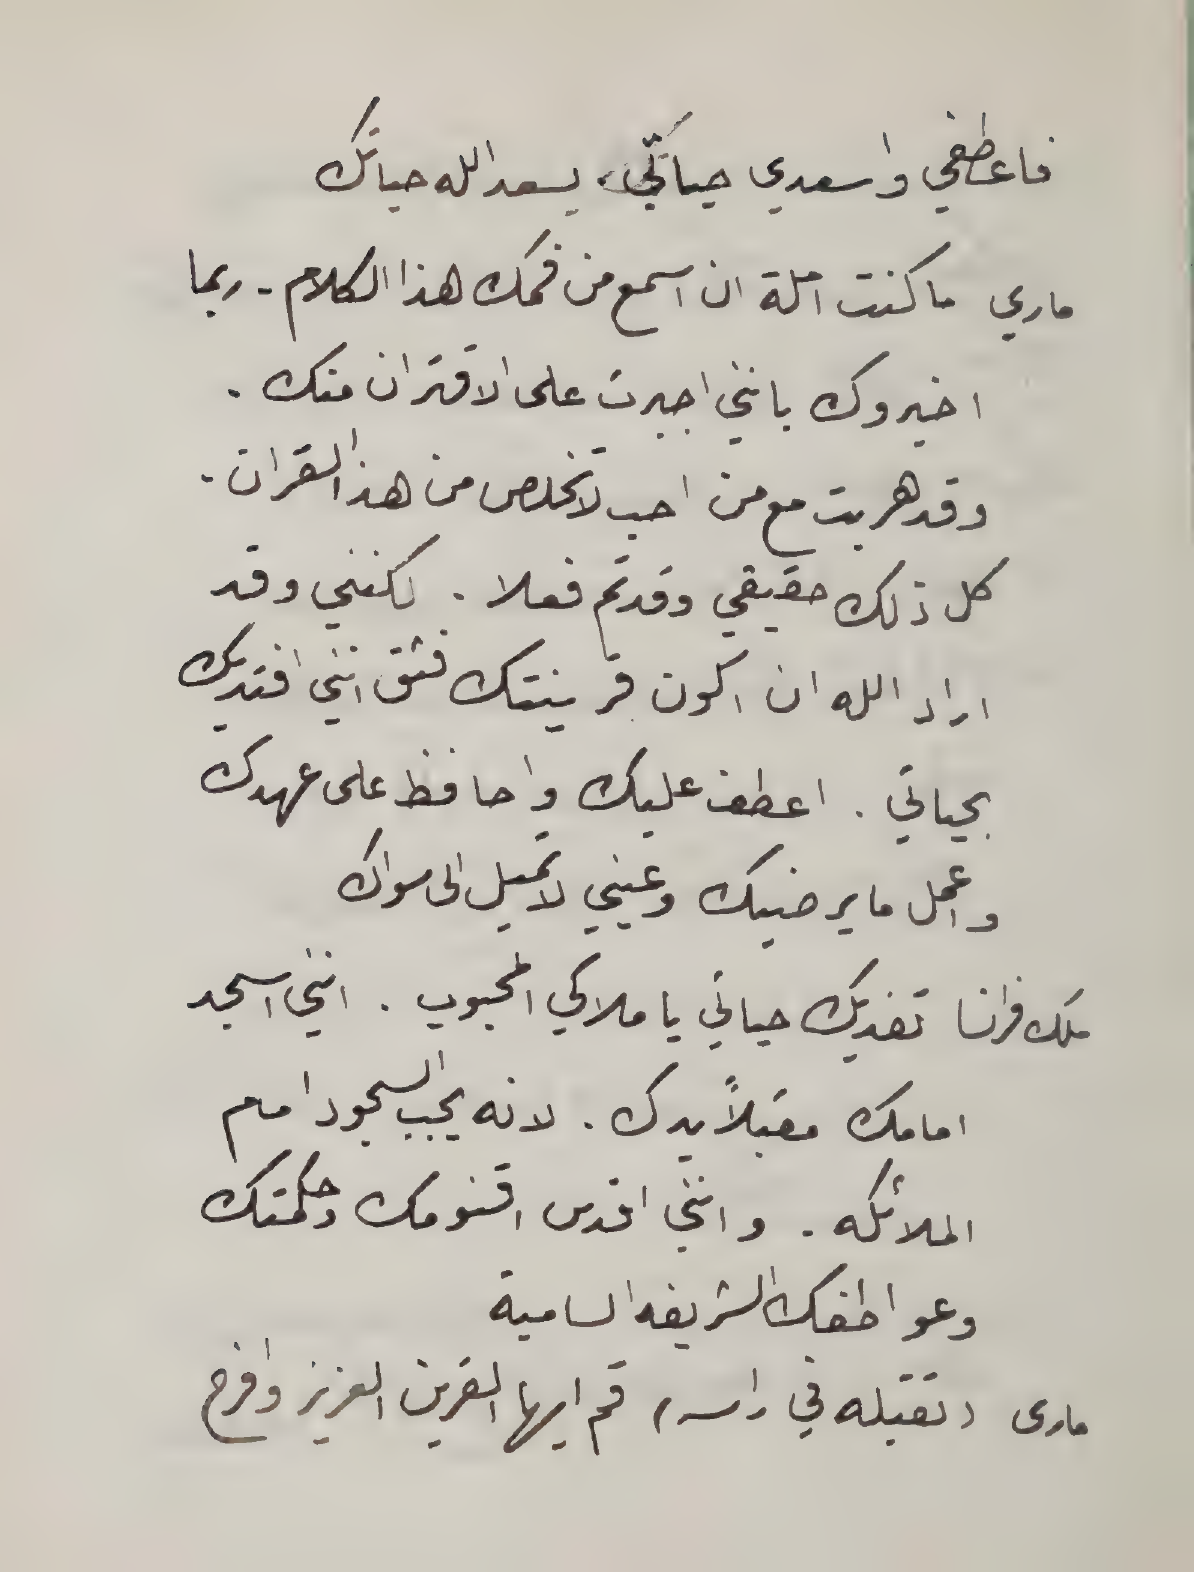 فاعطفي واسعدي حياتي، يسعد الله حياتك
ماري ما كنت املة ان اسمع من فمك هذا الكلام - ربما
اخبروك بانني اجبرت على الاقتران منك .
وقد هربت مع من احب لاتخلص من هذا القران .
كل ذلك حقيقي وقد تم فعلا . لكنني وقد
اراد الله ان اكون قرينتك فثق انني افتديك
بحياتي . اعطف عليك واحافظ على عهدك
واعمل ما يرضيك وعيني لا تميل الى سواك
ملك فرنسا تفديك حياتي يا ملاكي المحبوب . انني اسجد
امامك مقبلاً يدك . لانه يجب السجود امام
الملائكه . وانني اقدس اقنومك وحكمتك
وعواطفك الشريفه السامية
مارى (تقبله في راسه) قم ايها القرين العزيز وافرح